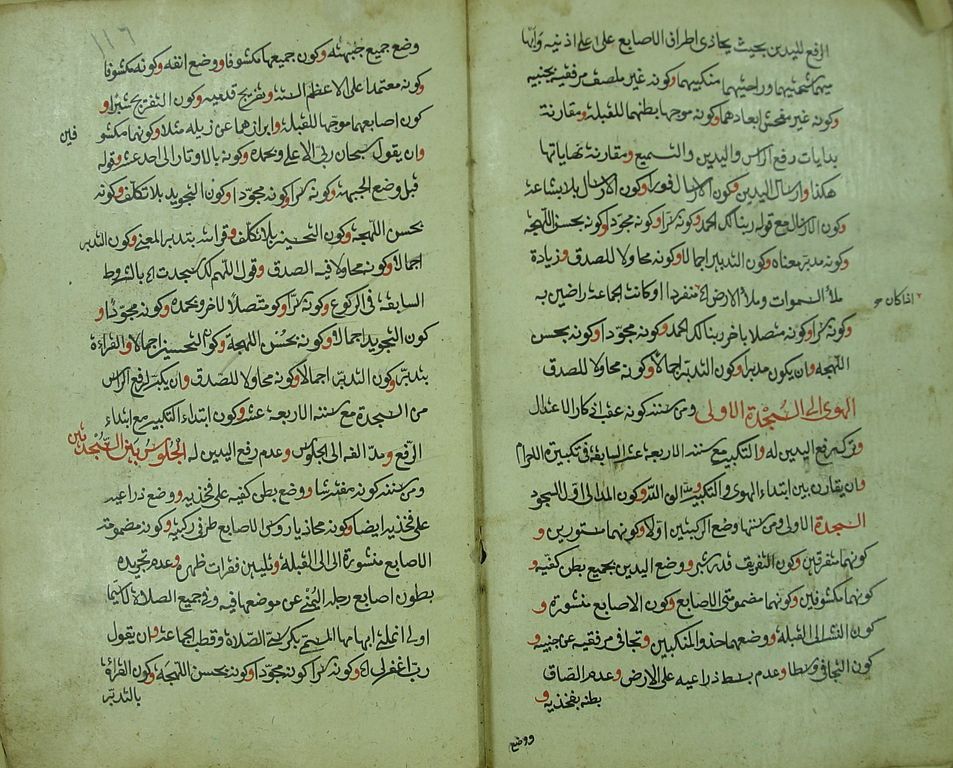 الرفع لليدين بحيث يحاذى اطراف الاصابع على اعلى اذنيه وابها
ميهما شحمتيهما وراحتيهما منكبيهما وكونه غير ملصق مرفقيه بجنبيه
وكونه غير مفحش ابعادهما وكونه موجها بطنهما للقبلة ومقارنة
بدايات رفع الراس واليدين والتسميع ومقارنة نهاياتها
هكذا وارسال اليدين وكون الارسال فورا وكون الارسال بلا بشاعة
وكون الارسال مع قوله ربنا لك الحمد وكونه سرا وكونه مجودا وكونه بحسن اللهجة
وكونه مدبر معناه وكون التدبير اجمالا وكونه محاولا للصدق وزيادة
ملأ السموات وملأ الارض الخ منفردا او كانت الجماعة راضين به
اذا كان
وكونه سرا وكونه متصلا باخر ربنا لك الحمد وكونه مجودا وكونه بحسن
اللهجة وان يكون مدبرا وكون التدبر اجمالا وكونه محاولا للصدق
الهوى الى السجدة الاولى ومن سننه كونه عقب اذكار الاعتدال
وتركه رفع اليدين له والتكبير مع سننه الاربعة عشر السابقة فى تكبيرة التحرام
وان يقارن بين ابتداء الهوى والتكبير الى الله وكون المد الى اول السجود
السجدة الاولى ومن سننها وضع الركبتين اولا وكونهما مستورين و
كونهما متفرقين وكون التفريق قدر شبر ووضع اليدين بجميع بطن كفيه و
كونهما مكشوفين وكونهما مضمومتى الاصابع وكون الاصابع منشورة و
كون النشر الى القبلة ووضعهما حذو المنكبين وتجافى مرفقيه عن جنبيه و
كون التجافى وسطا وعدم بسط ذراعيه على الارض وعدم الصاق
بطنه بفخذيه و
ووضع
١١٦
وضع جميع جبهته وكون جميعها مكشوفا ووضع انفه وكونه مكشوفا
وكونه معتمدا على الاعظم الستة وتفريج قدميه وكون التفريج شبرا و
كون اصابعهما موجها للقبلة وابرازهما عن زيله مثلا وكونهما مكشو
فين
وان يقول سبحان ربى الاعلى وبحمده وكونه بالاوتار الى احدى عشر وقوله
قبل وضع الجبهة وكونه سرا وكونه مجودا وكون التجويد بلا تكلف وكونه
بحسن اللهجة وكون التحسين بلا تكلف وقراءته بتدبر المعنى وكون التدبر
اجمالا وكونه محاولا فيه الصدق وقول اللهم لك سجدت الخ بالشروط
السابقة فى الركوع وكونه سرا وكونه متصلا لاخر وبحمده وكونه مجودا و
كون التجويد اجمالا وكونه بحسن اللهجة وكون التحسين اجمالا والقراءة
بتدبر وكون التدبر اجمالا وكونه محاولا للصدق وان يكبر لرفع الراس
من السجدة مع سننه الاربعة عشر وكون ابتداء التكبير مع ابتداء
الرفع ومد الفه الى الجلوس وعدم رفع اليدين له الجلوس بين السجدتين
ومن سننه كونه مفترشا ووضع بطن كفيه على فخذيه ووضع ذراعيه
على فخذيه ايضا وكونه محاذيا روس الاصابع طرفى ركبتيه وكونه مضمومة
الاصابع منشورة الى القبلة وتليين فقرات ظهره وعدم تجريده
بطون اصابع رجله اليمنى عن موضعها فيه وفى جميع الصلاة لاسيما
الصلاة وقطب الجماعة وان يقول
رب اغفر لى الخ وكونه سرا كونه مجودا وكونه بحسن اللهجة وكون القراءة
بالتدبر